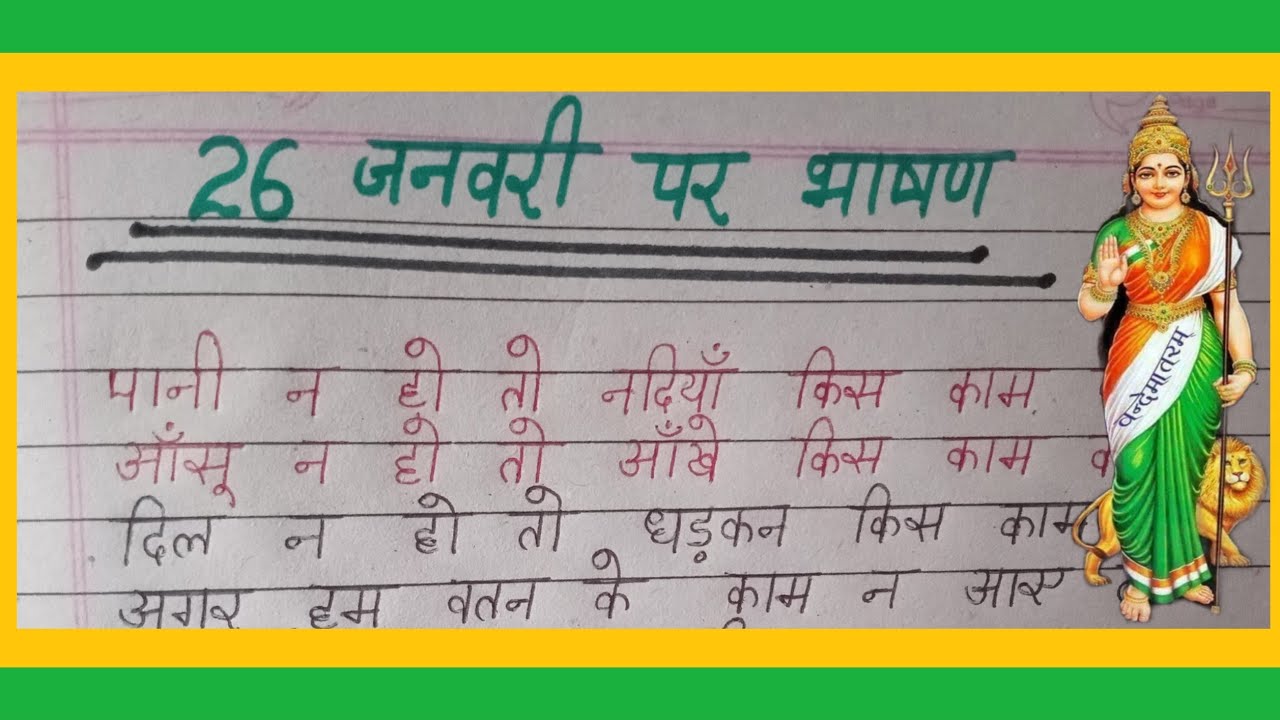 26 जनवरी पर भाषण
पानी न हो तो नदियाँ किस काम
आँसू न हो तो आँखे किस काम
दिल न हो तो धड़कन किस काम
अगर हम वतन के काम न आए
वन्देमातरम्